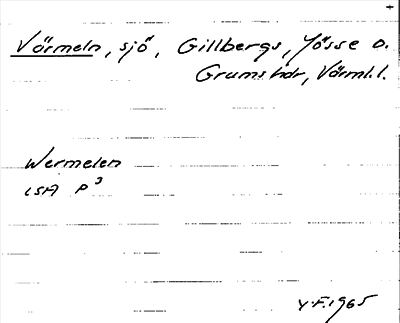 Värmeln, sjö, Gillbergs, Jösse o.
Grums hdr, Värml.l.
Wermelen
LSA P³
Y.F. 1965